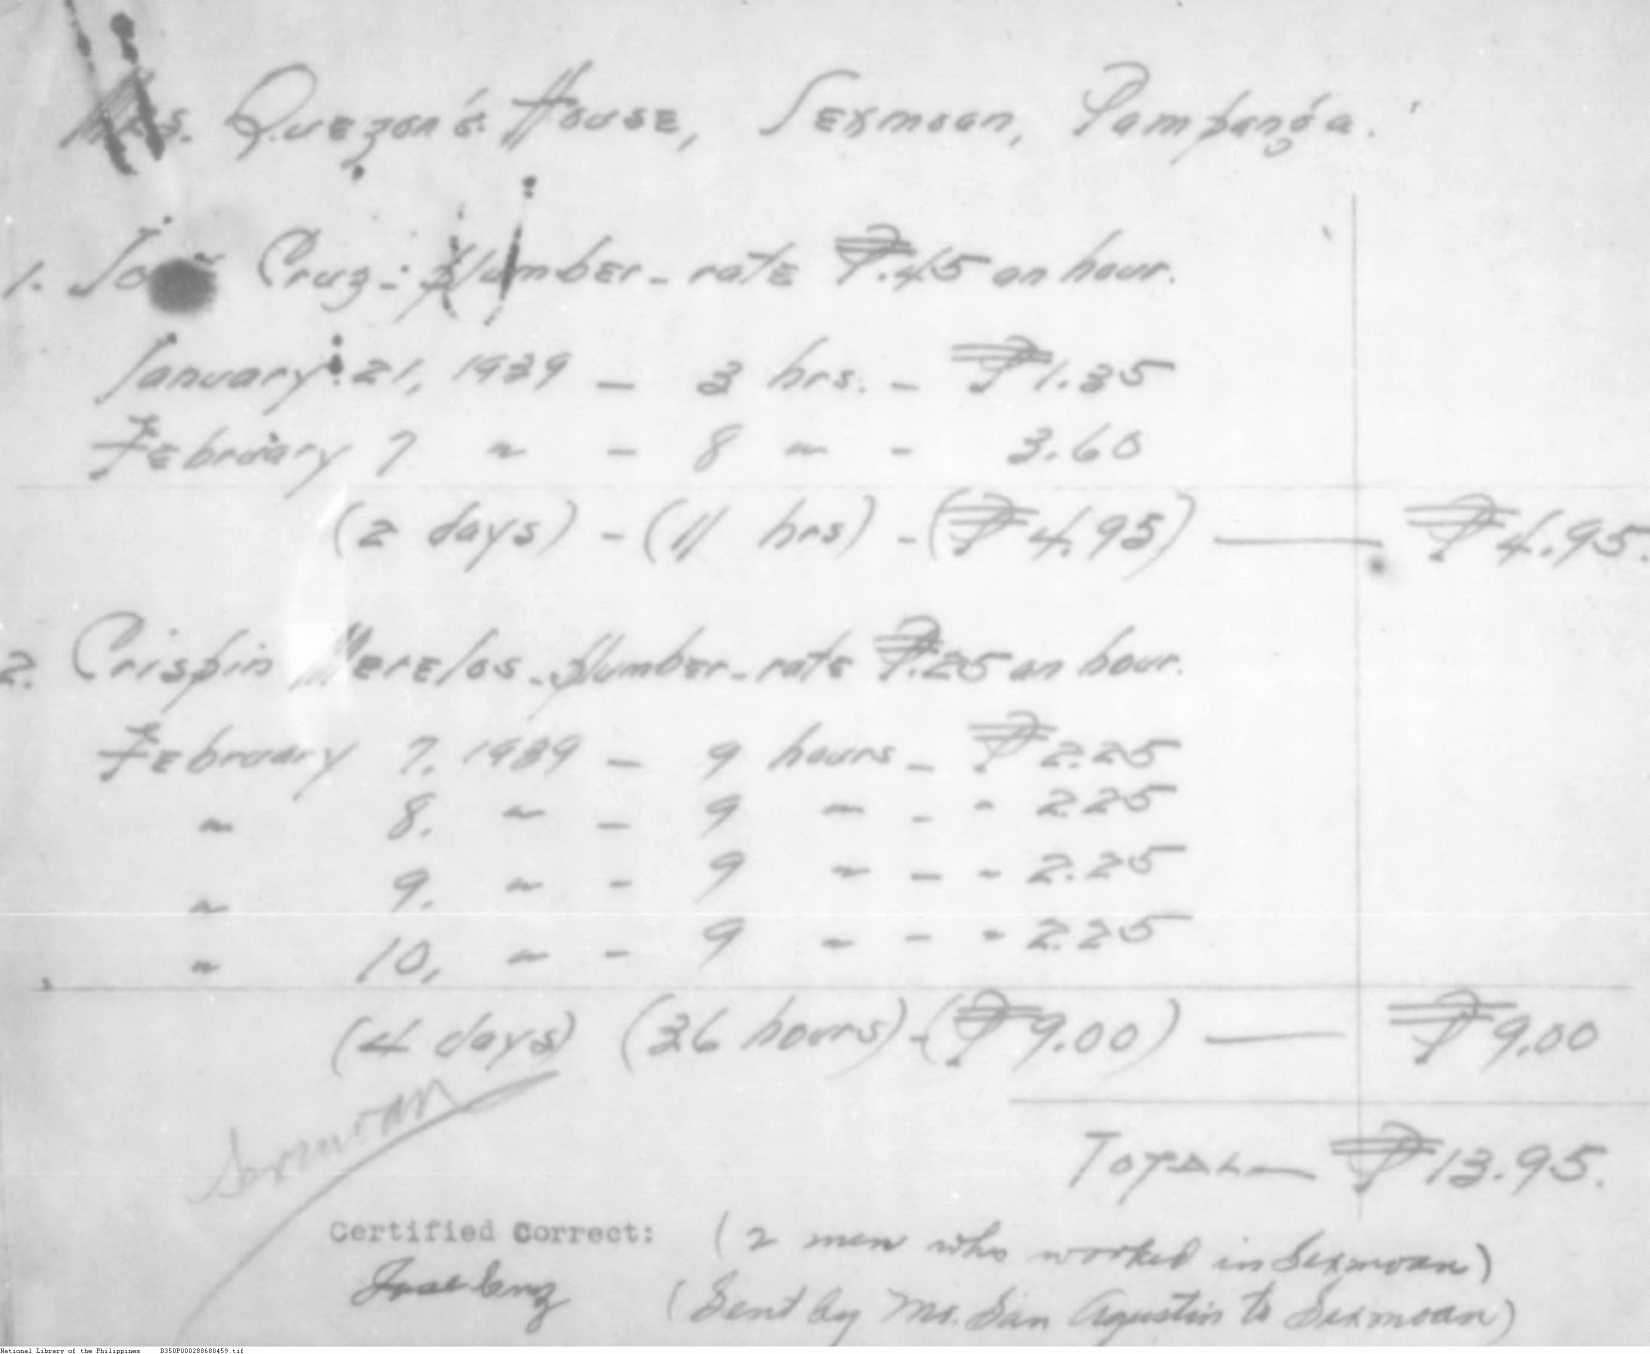 Mrs. Quezon's House, Sexmoan, Pampanga.
1. José Cruz - Plumber - rate ₱.45 an hour.
January 21, 1939 - 3 hrs. - ₱1.35
February 7 " - 8 " - 3.60
(2 days) - (11 hrs) - (₱4.95) — ₱4.95.
2. Crispin Merelos - Plumber - rate ₱.25 an hour.
February 7, 1939 - 9 hours - ₱2.25
" 8, " - 9 " - " 2.25
" 9, " - 9 " - " 2.25
" 10, " - 9 " - " 2.25
(4 days) (36 hours) - (₱9.00) — ₱9.00
Sexmoan
Total — ₱13.95.
Certified Correct: (2 men who worked in Sexmoan)
Jose Cruz (Sent by Mr. San Agustin to Sexmoan)
National Library of the Philippines B350P000288680459.tif